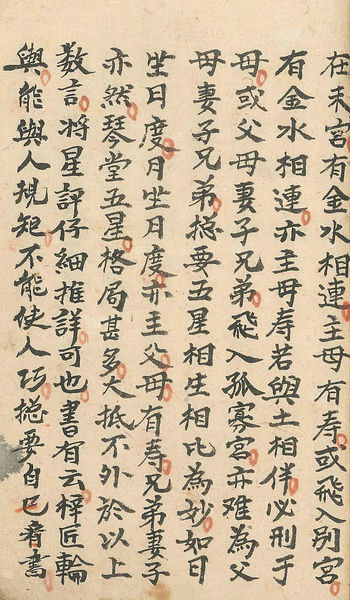 在未宮有金水相連主母有壽或飛入別宮
有金水相連亦主母寿若與土相伴必刑于
母或父母妻子兄弟飛入孤寡宮亦难為父
母妻子兄弟捴要五星相生相比為妙如日
坐日度月坐日度亦主父母有寿兄弟妻子
亦然琴堂五星格局甚多大抵不外於以上
数言将星評仔細推詳可也書有云梓匠輪
與能與人規矩不能使人巧捴要自己看書